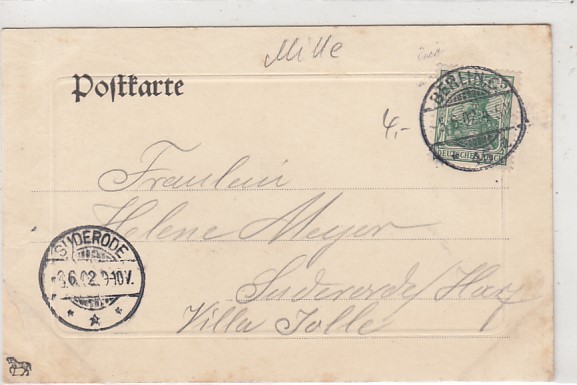 Mille
Postkarte
BERLIN.C.
DEUTSCHES REICH
4,-
Fräulein
Helene Meyer
Suderode/Harz
Villa Tolle
SUDERODE
3.6.02.9-10V.